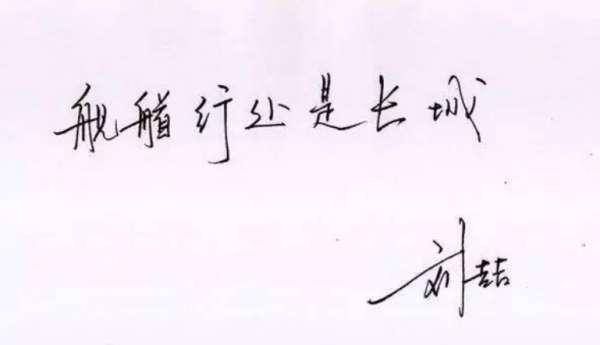 舰艏行处是长城
刘喆